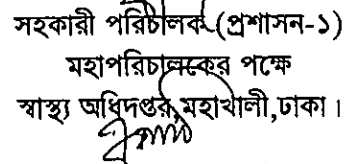 সহকারী পরিচালক (প্রশাসন-১)
মহাপরিচালকের পক্ষে
স্বাস্থ্য অধিদপ্তর,মহাখালী,ঢাকা।